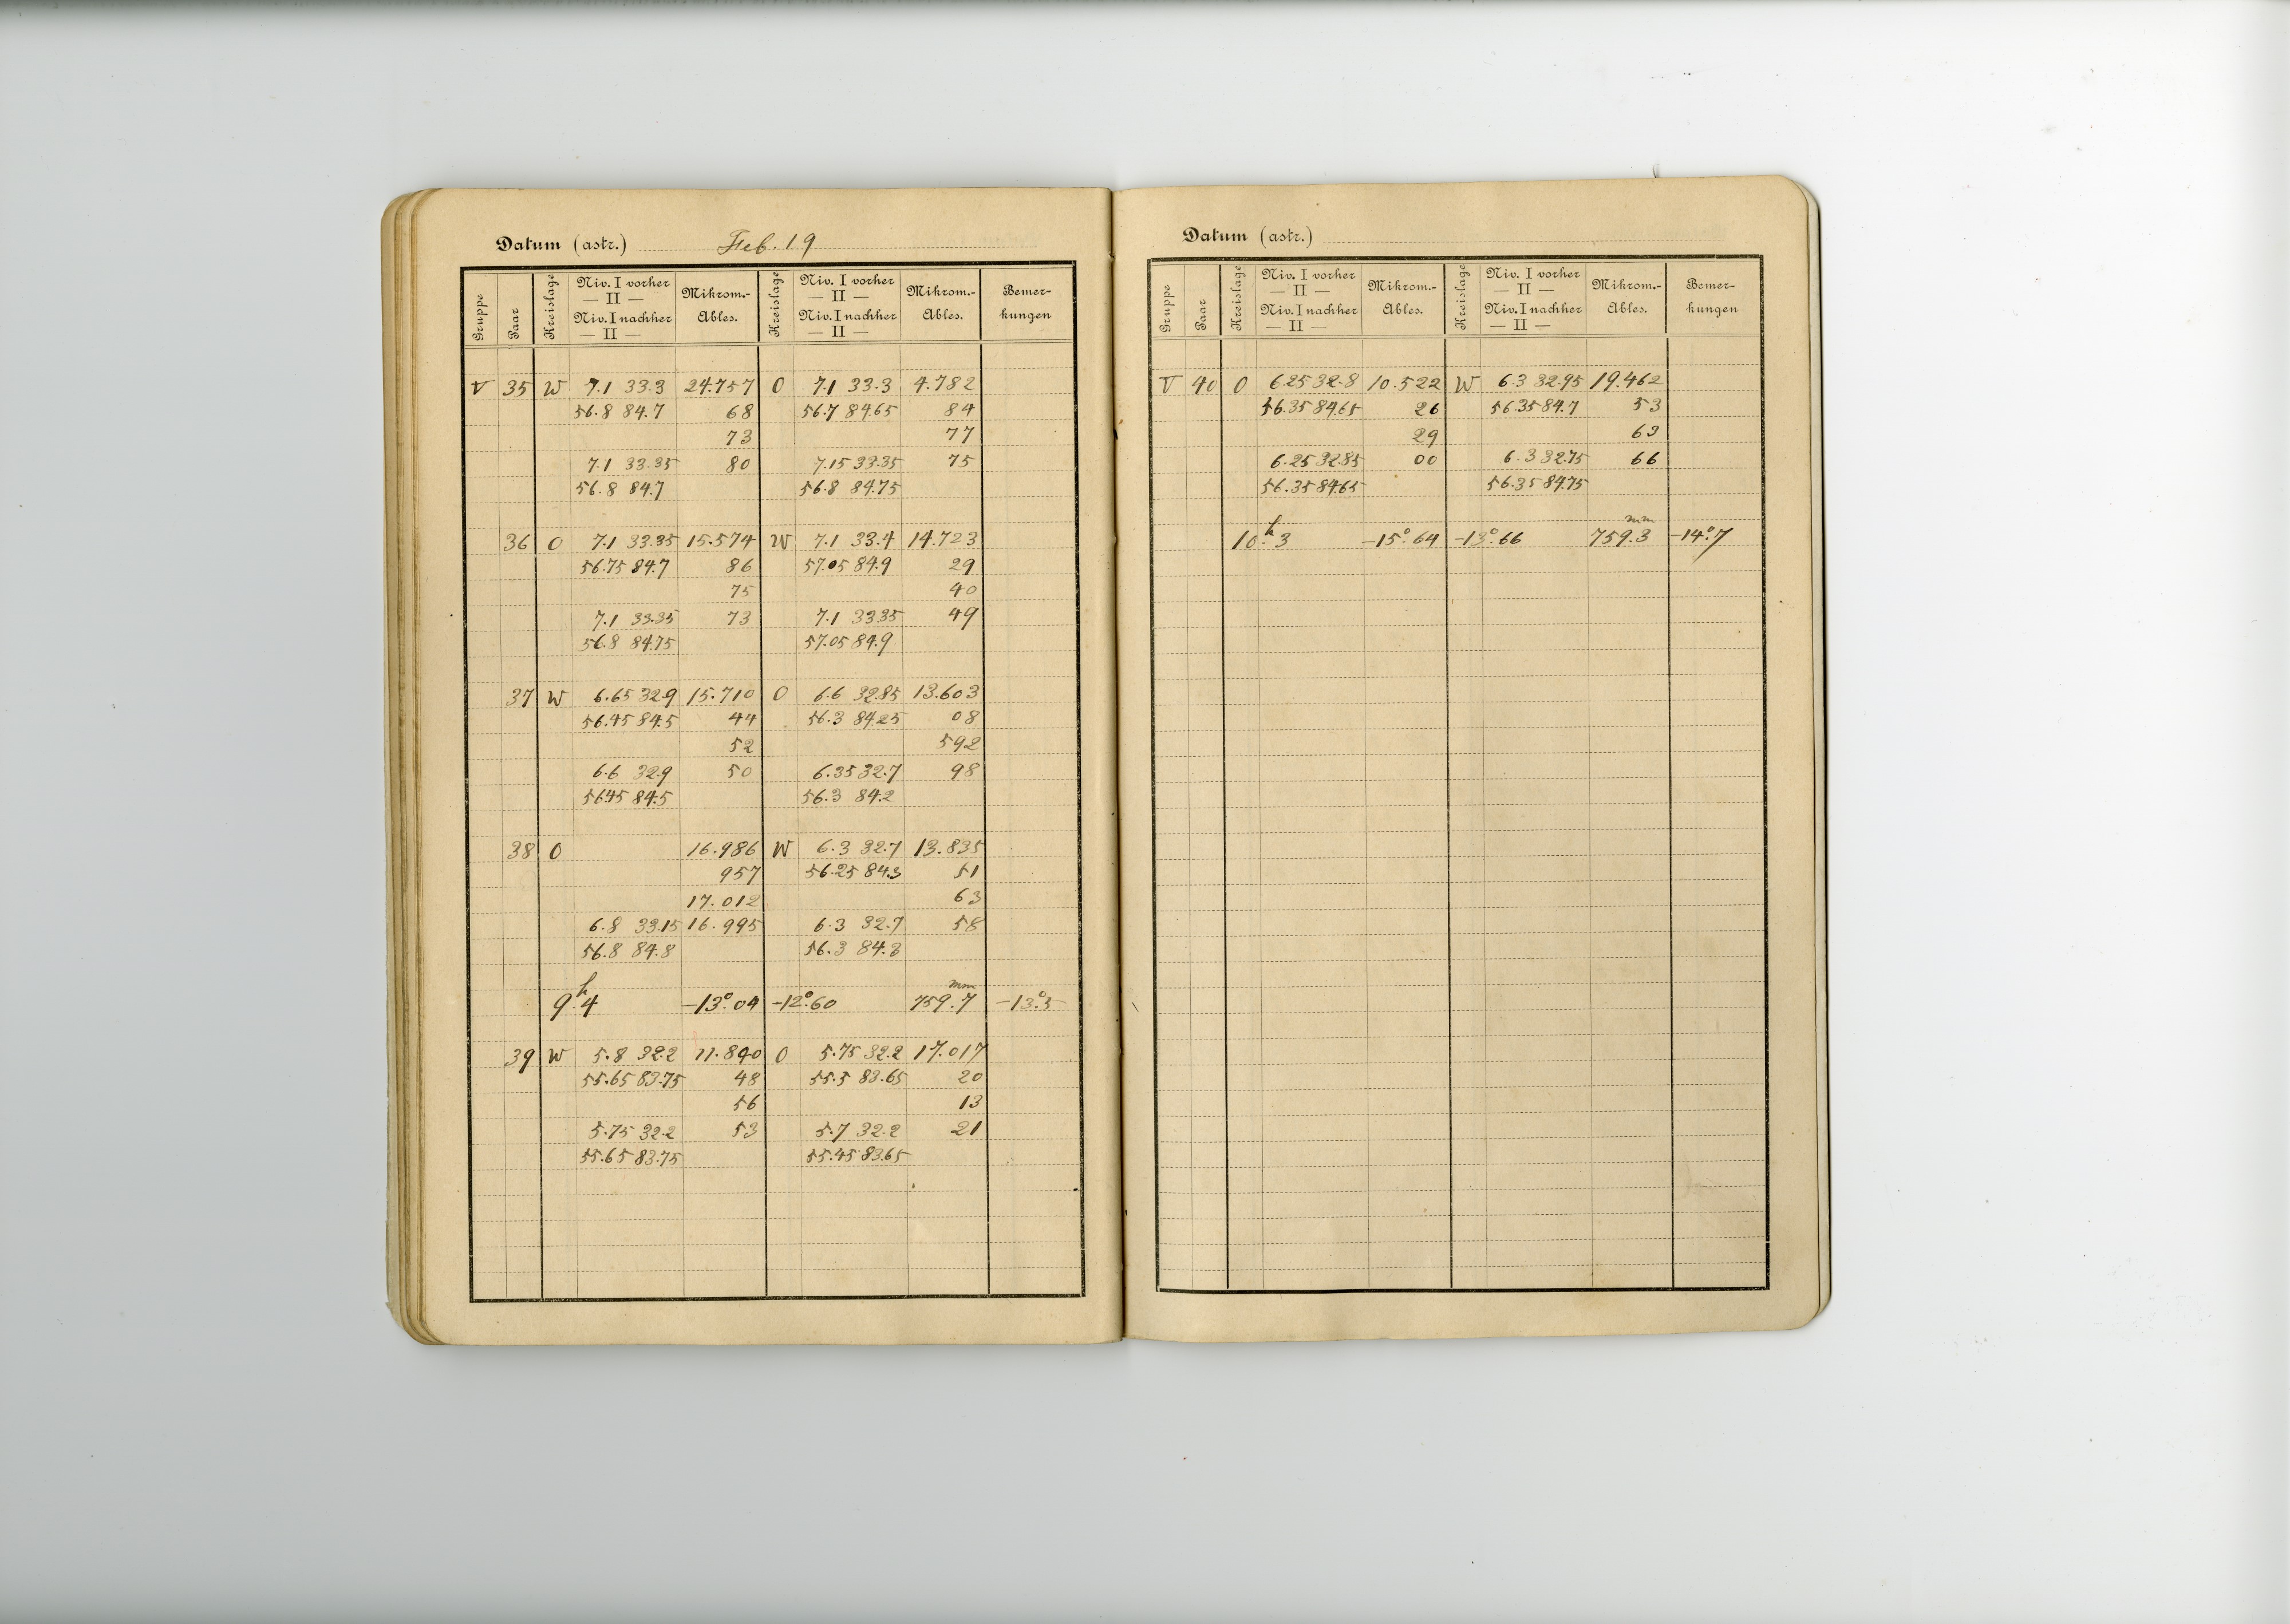 Datum (astr.) Feb. 19
Gruppe Paar Kreislage Niv. I vorher Mikrom.- Kreislage Niv. I vorher Mikrom.- Bemer-
— II — — II —
Niv. I nachher Ables. Niv. I nachher Ables. kungen
— II — — II —
V 35 W 7.1 33.3 24.757 O 7.1 33.3 4.782
56.8 84.7 68 56.7 84.65 84
73 77
7.1 33.35 80 7.15 33.35 75
56.8 84.7 56.8 84.75
36 O 7.1 33.35 15.574 W 7.1 33.4 14.723
56.75 84.7 86 57.05 84.9 29
75 40
7.1 33.35 73 7.1 33.35 49
56.8 84.75 57.05 84.9
37 W 6.65 32.9 15.710 O 6.6 32.85 13.603
56.45 84.5 44 56.3 84.25 08
52 592
6.6 32.9 50 6.35 32.7 98
56.45 84.5 56.3 84.2
38 O 16.986 W 6.3 32.7 13.835
957 56.25 84.3 51
17.012 63
6.8 33.15 16.995 6.3 32.7 58
56.8 84.8 56.3 84.3
9.h4 −13.°04 −12.°60 759.7 mm −13.°5
39 W 5.8 32.2 11.840 O 5.75 32.2 17.017
55.65 83.75 48 55.5 83.65 20
56 13
5.75 32.2 53 5.7 32.2 21
55.65 83.75 55.45 83.65
Datum (astr.)
Gruppe Paar Kreislage Niv. I vorher Mikrom.- Kreislage Niv. I vorher Mikrom.- Bemer-
— II — — II —
Niv. I nachher Ables. Niv. I nachher Ables. kungen
— II — — II —
V 40 O 6.25 32.8 10.522 W 6.3 32.95 19.462
56.35 84.65 26 56.35 84.7 53
29 63
6.25 32.85 00 6.3 32.75 66
56.35 84.65 56.35 84.75
10.h3 −15.°64 −13.°66 759.3 mm −14.°7